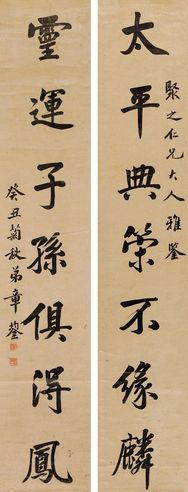 聚之仁兄大人雅鑒
太平典策不緣麟
靈運子孫俱得鳳
癸丑菊秋弟章鋆